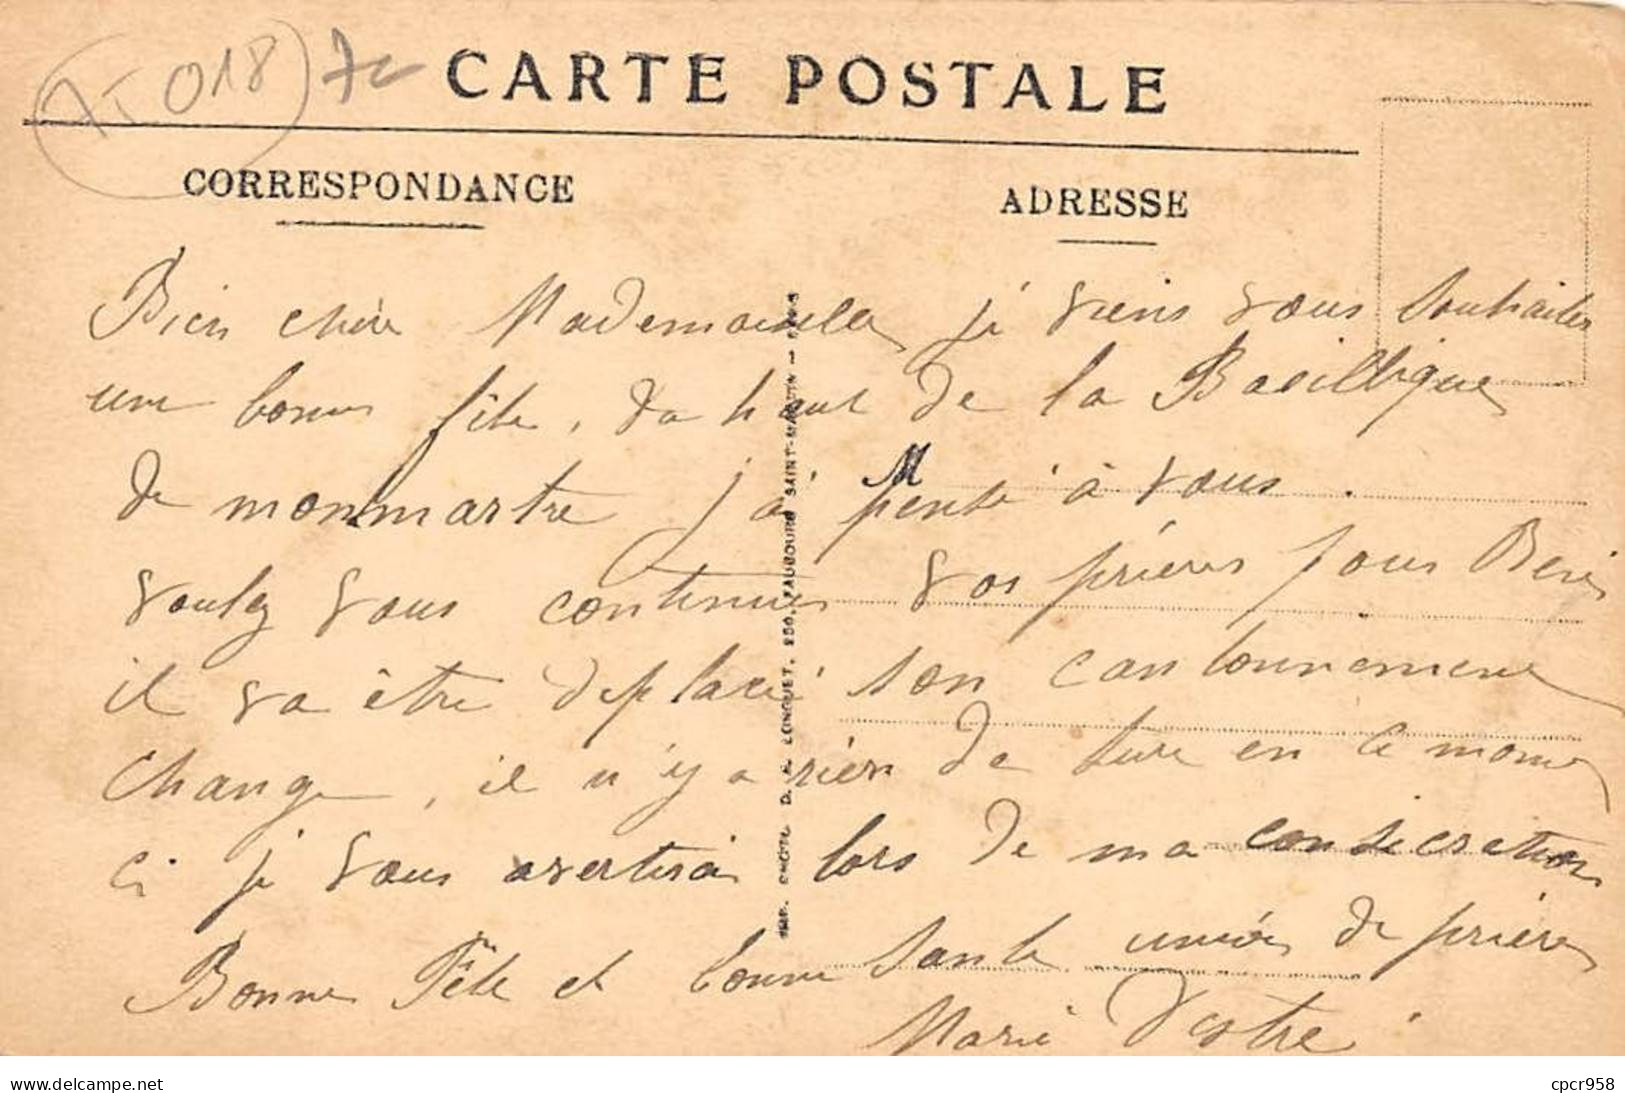 018
CARTE POSTALE
CORRESPONDANCE
ADRESSE
Bien chère Mademoiselle je viens vous souhaiter
une bonne fête, du haut de la Basillique
de monmartre j'ai pensé à vous.
M
voulez vous continuer vos prières pour René
il va être déplacé son cantonnement
change, il n'y a rien de sure en ce momen
ci je vous avertirai lors de ma consecration
Bonne Fête et bonne sante unión de prières
Marie
IMP. PHOTO. D. A. LONGUET, 250, FAUBOURG SAINT-MARTIN — PARIS
delcampe.net
cpcr958